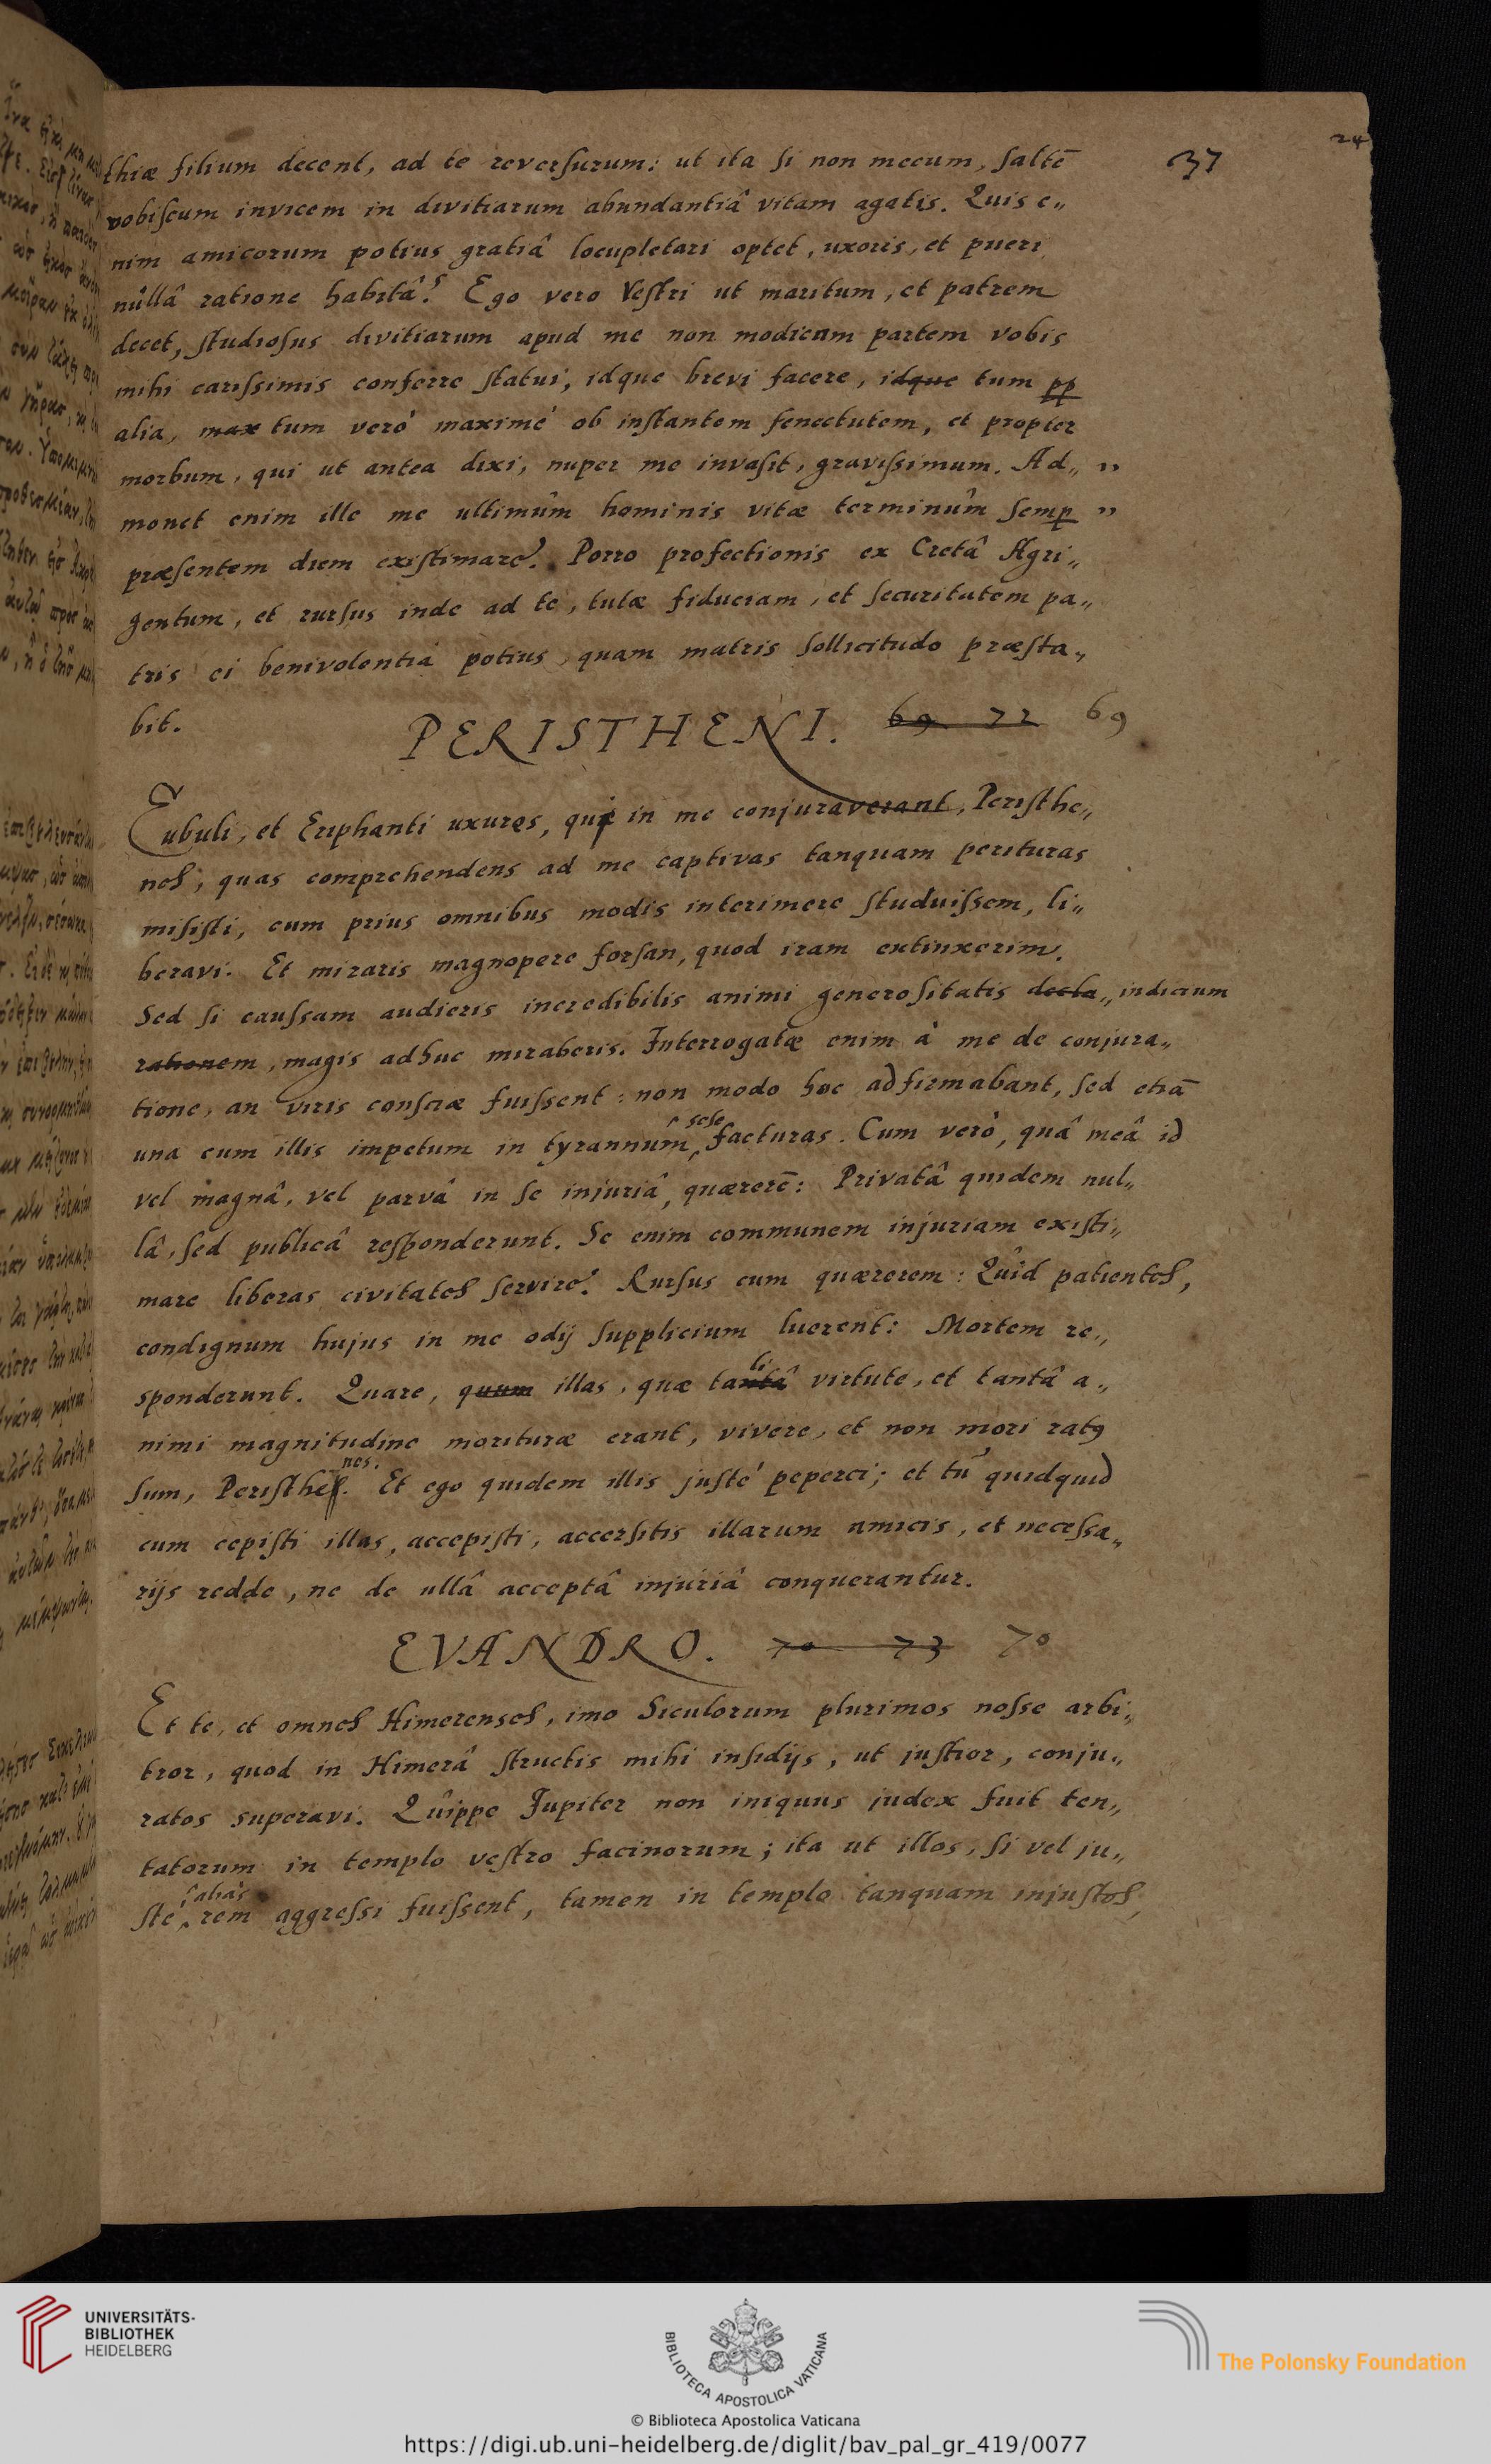 24
37
thiæ filium decent, ad te reversurum: ut ita si non mecum, saltē
vobiscum invicem in divitiarum abundantiâ vitam agatis. Quis e„
nim amicorum potius gratiâ locupletari optet, uxoris, et pueri
nullâ ratione habitâ? Ego vero Vestri ut maritum, et patrem
decet, studiosus divitiarum apud me non modicam partem vobis
mihi carissimis conferre statui, idque brevi facere, idque tum pp
alia, max tum verò maximè ob instantem senectutem, et propter
morbum, qui ut antea dixi, nuper me invasit, gravissimum. Ad„ „
monet enim ille me ultimûm hominis vitæ terminûm semp „
præsentem diem existimare. Porro profectionis ex Cretâ Agri„
gentum, et rursus inde ad te, tutæ fiduciam, et securitatem pa„
tris ei benivolentia potius, quam matris sollicitudo præsta„
bit.
PERISTHENI. 69 72 69
Eubuli, et Eriphanti uxores, qui in me conjuraverant, Peristhe„
nes, quas comprehendens ad me captivas tanquam perituras
misisti, cum prius omnibus modis interimere studuissem, li„
beravi. Et miraris magnopere forsan, quod iram extinxerim.
Sed si caussam audieris incredibilis animi generositatis decla„ indicium
rationem, magis adhuc miraberis. Interrogatæ enim à me de conjura„
tione, an viris consciæ fuissent: non modo hoc adfirmabant, sed etiā
una cum illis impetum in tyrannum sese facturas. Cum verò, quâ meâ id
vel magnâ, vel parvâ in se injuriâ, quærerē: Privatâ quidem nul„
lâ, sed publicâ responderunt. Se enim communem injuriam existi„
mare liberas civitates servire. Rursus cum quærerem: Quid patientes,
condignum hujus in me odij supplicium luerent: Mortem re„
sponderunt. Quare, quum illas, quæ tantâ li virtute, et tantâ a„
nimi magnitudine morituræ erant, vivere, et non mori ratus
sum, Peristhenes. Et ego quidem illis justè peperci; et tu quidquid
cum cepisti illas, accepisti, accersitis illarum amicis, et necessa„
rijs redde, ne de ullâ acceptâ injuriâ conquerantur.
EVANDRO. 70 73 70
Et te, et omnes Himerenses, imo Siculorum plurimos nosse arbi„
tror, quod in Himerâ structis mihi insidijs, ut justior, conju„
ratos superavi. Quippe Jupiter non iniquus judex fuit ten„
tatorum in templo vestro facinorum; ita ut illos, si vel ju„
stè aliàs rem aggressi fuissent, tamen in templo tanquam injustos,
UNIVERSITÄTS-
BIBLIOTHEK
HEIDELBERG
BIBLIOTECA APOSTOLICA VATICANA
© Biblioteca Apostolica Vaticana
The Polonsky Foundation
https://digi.ub.uni-heidelberg.de/diglit/bav_pal_gr_419/0077